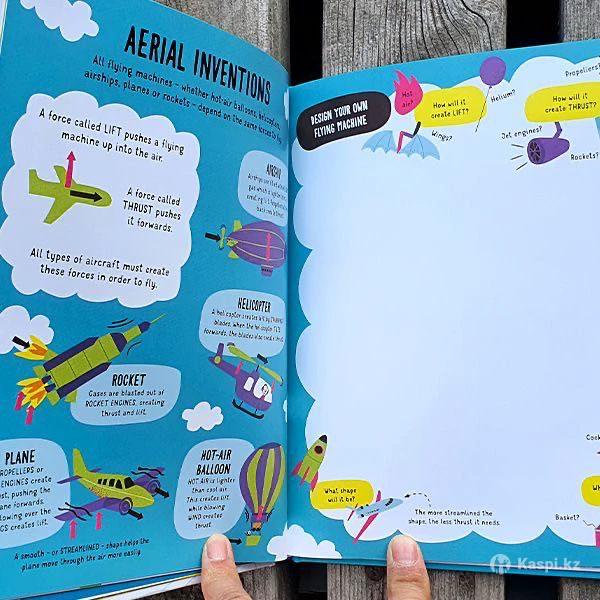 AERIAL INVENTIONS
All flying machines - whether hot-air balloons, helicopters,
airships, planes or rockets - depend on the same forces to fly.
A force called LIFT pushes a flying
machine up into the air.
A force called
THRUST pushes
it forwards.
All types of aircraft must create
these forces in order to fly.
AIRSHIP
HELICOPTER
A helicopter creates lift by
blades. When the helicopter TILTS
forwards, the blades also create thrust.
ROCKET
Gases are blasted out of
ROCKET ENGINES, creating
thrust and lift.
PLANE
PROPELLERS or
ENGINES create
pushing the
forwards.
flowing over the
creates lift.
HOT-AIR
BALLOON
HOT AIR is lighter
than cool air.
This creates lift,
while blowing
WIND creates
thrust.
A smooth - or STREAMLINED - shape helps the
plane move through the air more easily.
DESIGN YOUR OWN
FLYING MACHINE
Hot
air?
How will it
create LIFT?
Wings?
Helium?
Propellers?
How will it
create THRUST?
Jet engines?
Rockets?
What shape
will it be?
The more streamlined the
shape, the less thrust it needs.
Basket?
Kaspi.kz